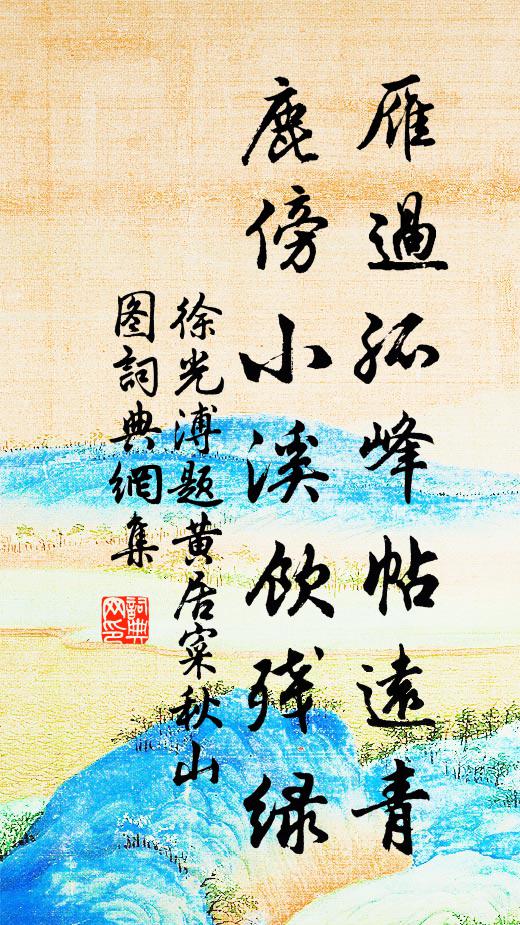 雁過孤峰帖遠青
鹿傍小溪飲残绿
徐光溥题黄居寀秋山
图詞典網集
詞典
网印